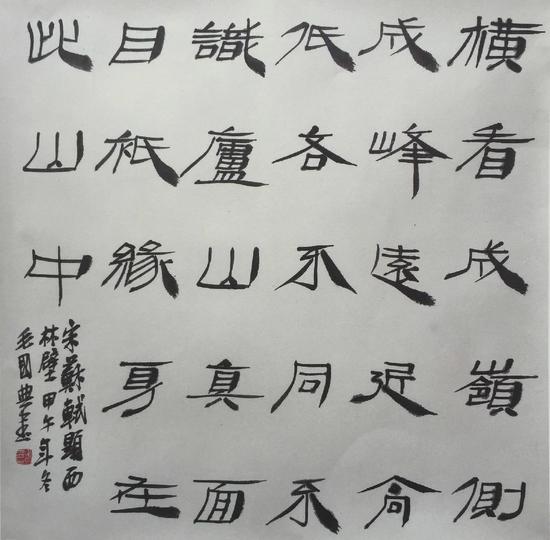 橫看成嶺側
成峰遠近高
低各不同不
識廬山真面
目祇緣身在
此山中
宋蘇軾題西
林壁甲午年冬
毛國典書